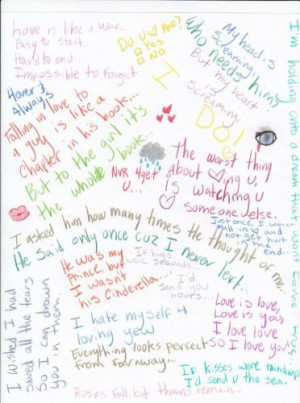 Love is like a war..
Easy to start..
Hard to end..
Impossible to forget
Do U ♥ Me?
□ Yes
□ No
My head is
Screaming
Who needs him?
But my heart
is
Screaming
I
DO!
4ever &
Always
Falling in love to
a guy is like a
chapter in his book...
But to the girl it's
the whole book..
Nvr 4get
U...
The worst thing
about ♥ing u,
is watching u
♥ someone else.
I'm holding onto a dream that
I asked him how many times He thought of me..
He Said only once cuz I never left..
Just once, I want
He was my
Prince, but
I wasn't
his Cinderella
If hugs
were seconds..
I'd
send you
hours..
I wished I had
saved all the tears
so I can drown
you in them.
I hate myself 4
loving you
Everything looks perfect
from far away...
Love is love,
Love is you
I love love
So I love you!
If kisses were raindrops
I'd send u the sea.
Roses fall, but thorns remain...